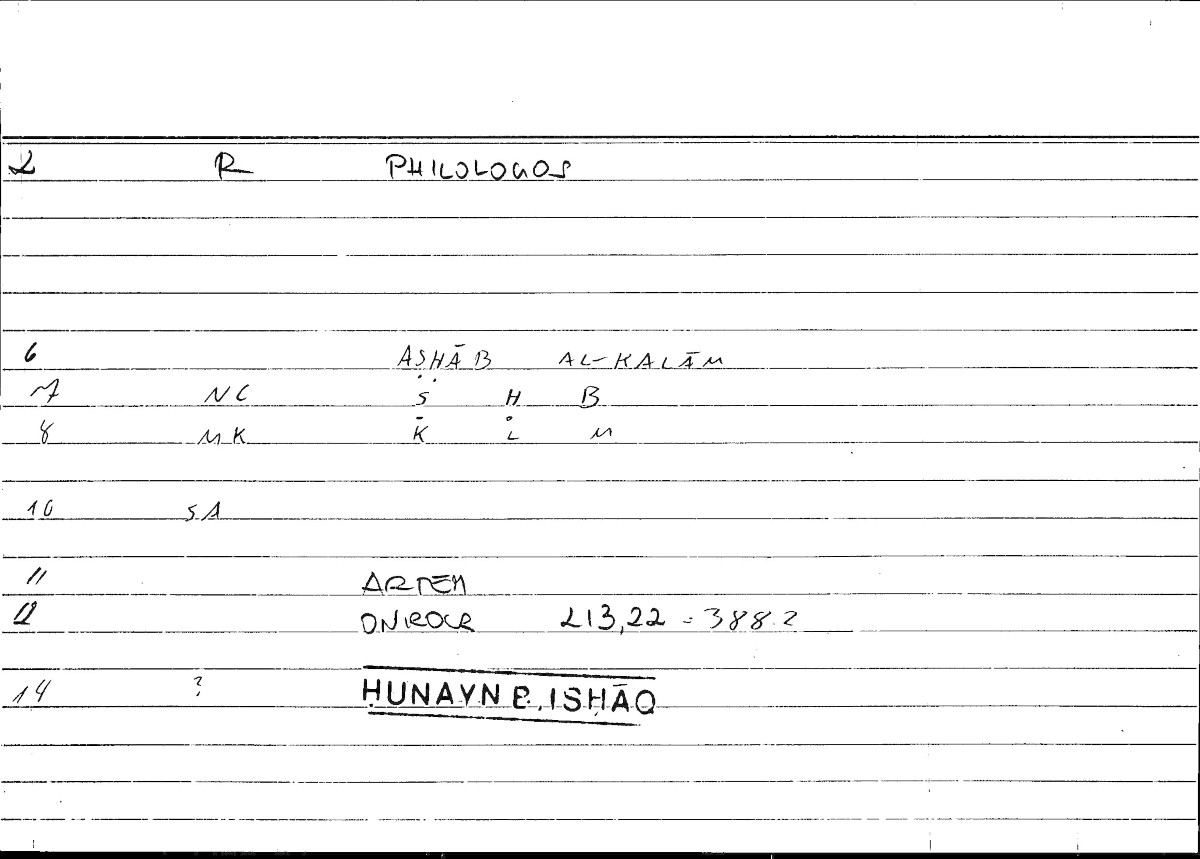 2 R PHILOLOGOS
6 AṢḤĀB AL-KALĀM
7 NC Ṣ Ḥ B
8 MK K L M
10 SA
11 ARTEM
12 ONIROCR 213,22 = 388.2
14 ? ḤUNAYN B. ISḤĀQ